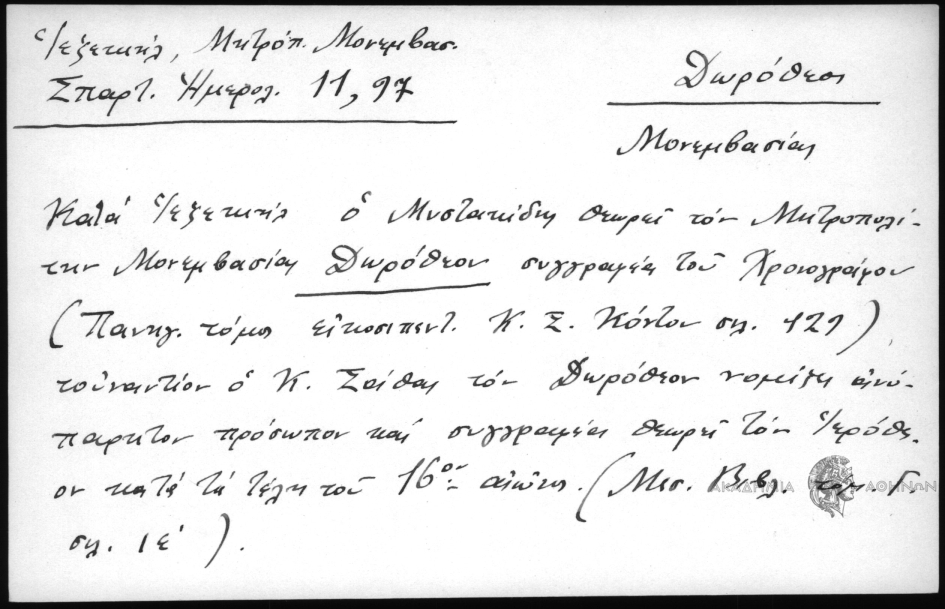 Ἱεζεκιήλ, Μητρόπ. Μονεμβασ.
Σπαρτ. Ἡμερολ. 11, 97
Δωρόθεος
Μονεμβασίας
Κατά Ἱεζεκιήλ ὁ Μυστακίδης θεωρεῖ τόν Μητροπολί-
την Μονεμβασίας Δωρόθεον συγγραφέα τοῦ Χρονογράφου
(Πανηγ. τόμος εἰκοσιπεντ. Κ. Σ. Κόντου σελ. 121)
τοὐναντίον ὁ Κ. Σάθας τόν Δωρόθεον νομίζει ἀνύ-
παρκτον πρόσωπον καί συγγραφέα θεωρεῖ τόν Ἱερόθε-
ον κατά τά τέλη τοῦ 16ου αἰῶνος. (Μεσ. Βιβλ. τομ. Γ
σελ. ιε΄).
ΑΚΑΔΗΜΙΑ ΑΘΗΝΩΝ